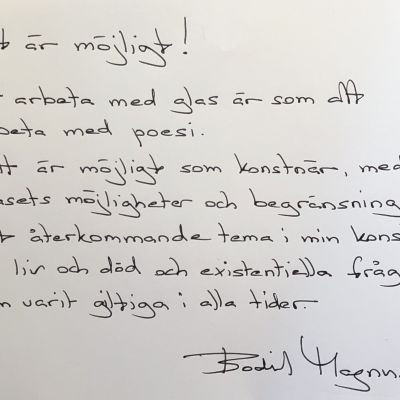 t är möjligt!
t arbeta med glas är som att
beta med poesi.
t är möjligt som konstnär, med
asets möjligheter och begränsning
t återkommande tema i min kons
liv och död och existentiella fråg
n varit giltiga i alla tider.
Bodil Magnu